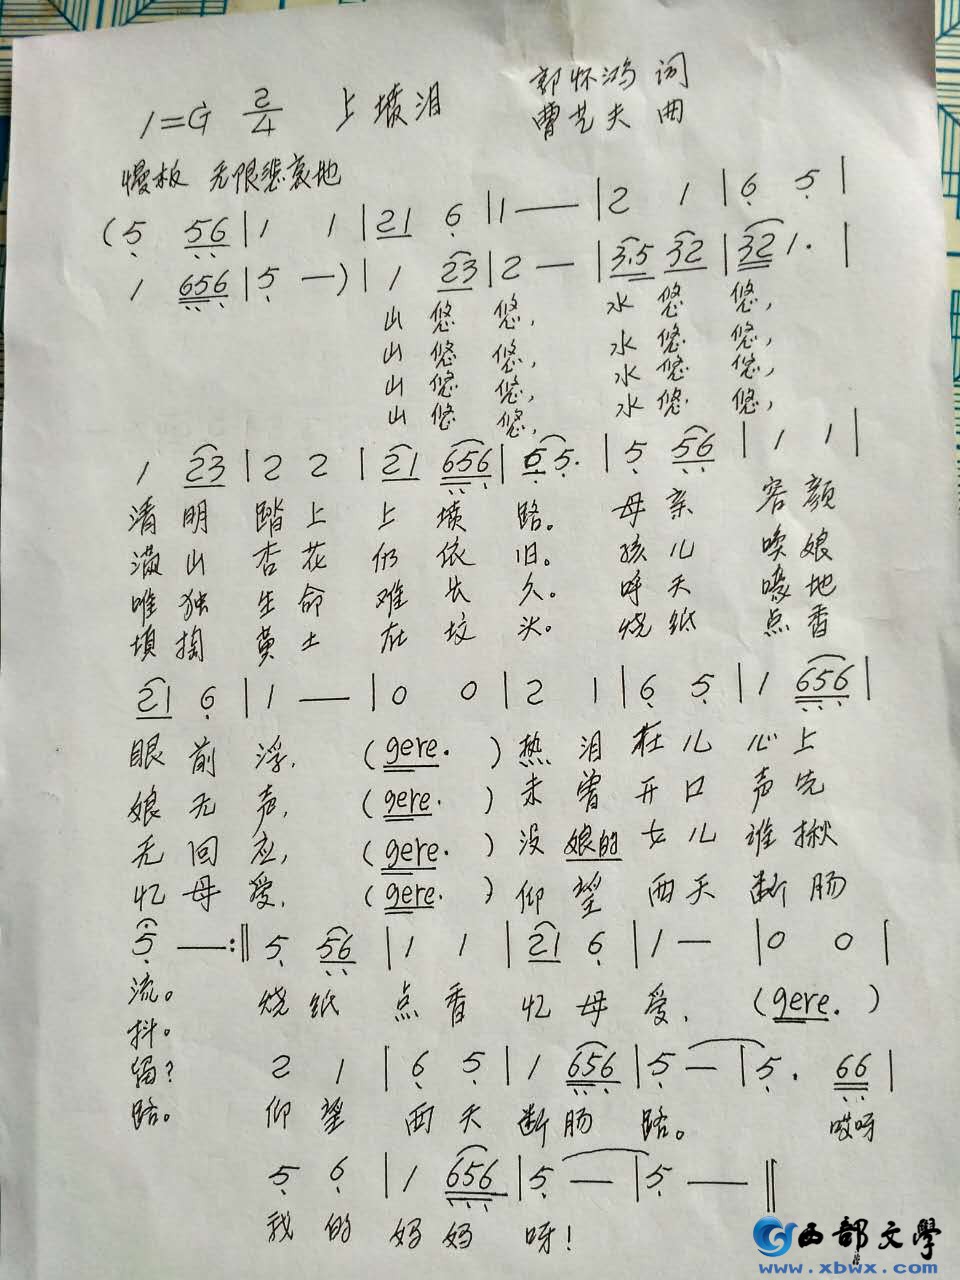 1=G 2/4 上坡泪 郭怀鸿 词
曹艺夫 曲
慢板 无限悲哀地
(5 56 | 1 1 | 21 6 | 1 — — | 2 1 | 6 5 |
1 656 | 5 — ) | 1 23 | 2 — | 3.5 32 | 32 1. |
山悠悠, 水悠悠,
山悠悠, 水悠悠,
山悠悠, 水悠悠,
山悠悠, 水悠悠,
1 23 | 2 2 | 21 656 | 5 5. | 5 56 | 1 1 |
清明踏上上坟路。 母亲容颜
满山杏花仍依旧。 孩儿唤娘
唯独生命难长久。 呼天嚎地
填掏黄土在坟头。 烧纸点香
21 6 | 1 — | 0 0 | 2 1 | 6 5 | 1 656 |
眼前浮, (gere. ) 热泪在儿心上
娘无声, (gere. ) 未曾开口声先
无回应, (gere. ) 没娘的女儿谁揪
忆母爱, (gere. ) 仰望西天断肠
5 — :‖ 5 56 | 1 1 | 21 6 | 1 — | 0 0 |
流。 烧纸点香忆母爱, (gere. )
抖。
2 1 | 6 5 | 1 656 | 5 — | 5. 66 |
路。 仰望西天断肠路。 哎呀
5 6 | 1 656 | 5 — | 5 — ‖
我的妈妈呀!
西部文學
www.xbwx.com